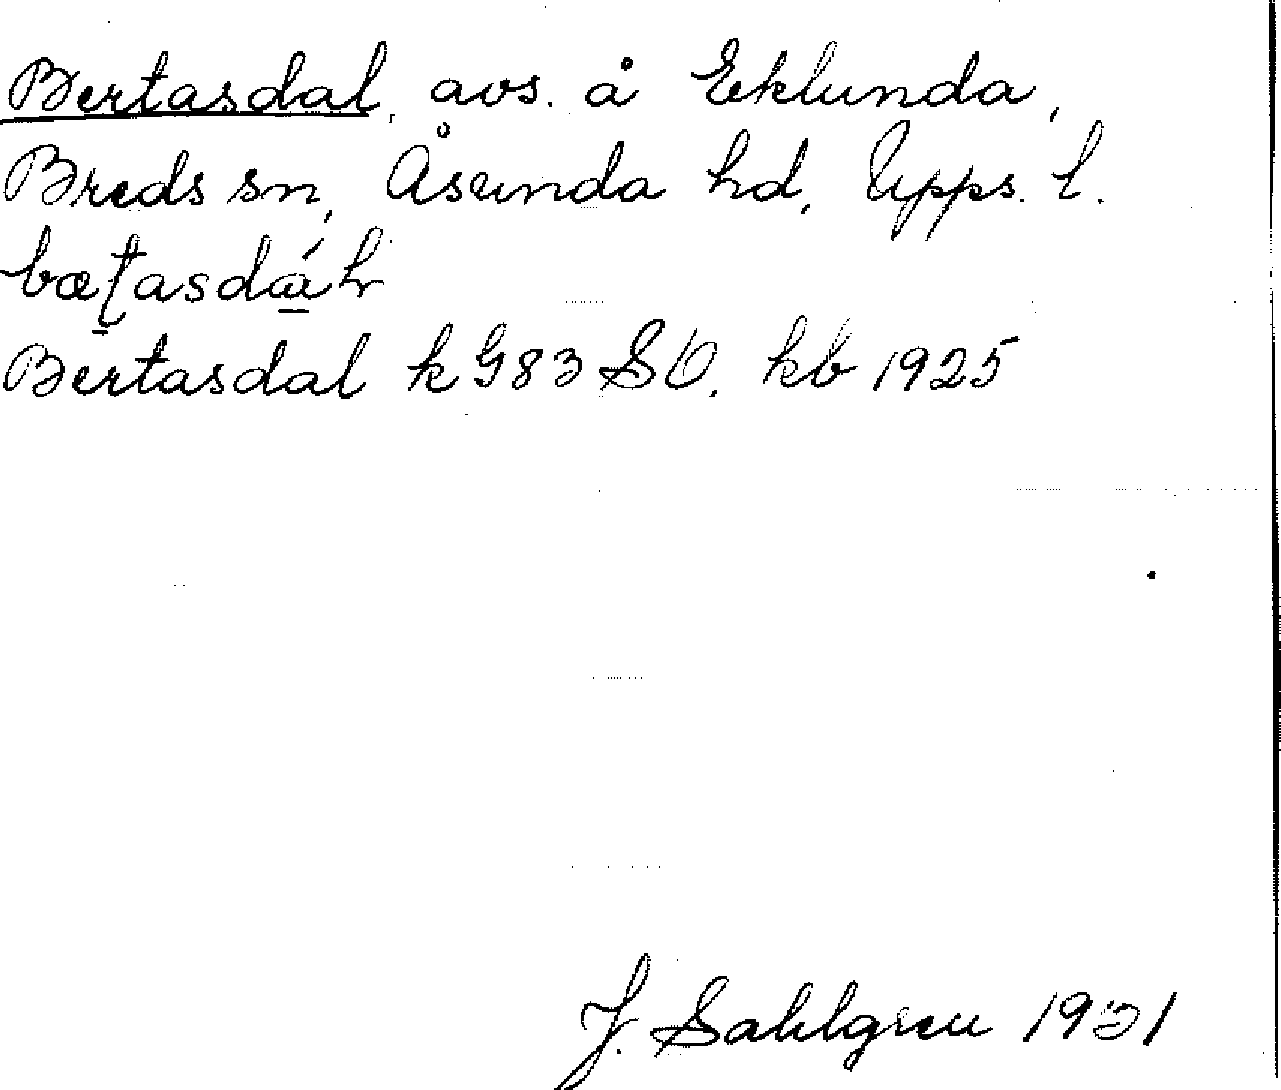 Bertasdal, avs. å Eklunda,
Breds sn, Åsunda hd, Upps. l.
Bertasdal k G83 SO. kb 1925
J. Sahlgren 1931